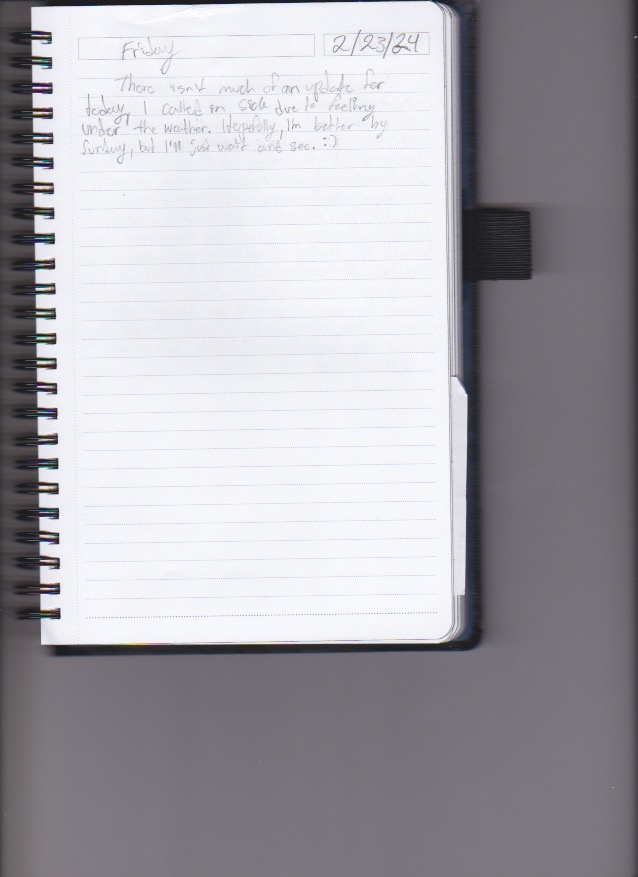 Friday
2/23/24
There isn't much of an update for
today, I called in sick due to feeling
under the weather. Hopefully, I'm better by
Sunday, but I'll just wait and see. :)